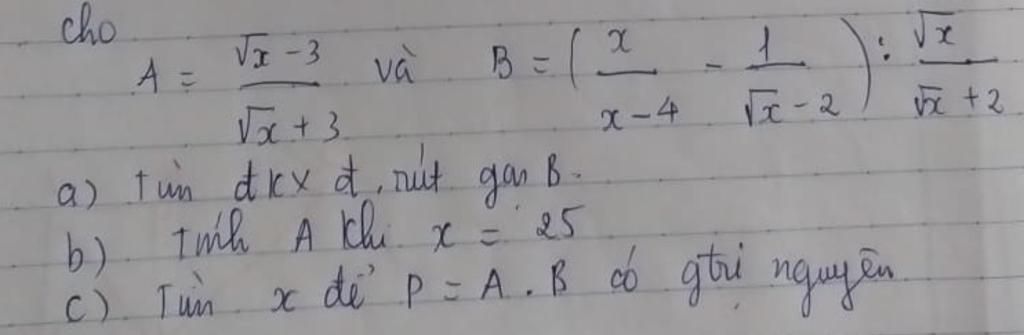 cho
A = (√x - 3)/(√x + 3) và B = (x/(x-4) - 1/(√x - 2)) : √x/(√x + 2)
a) tìm đkxđ, rút gọn B.
b) tính A khi x = 25
c) Tìm x để P = A . B có gtrị nguyên